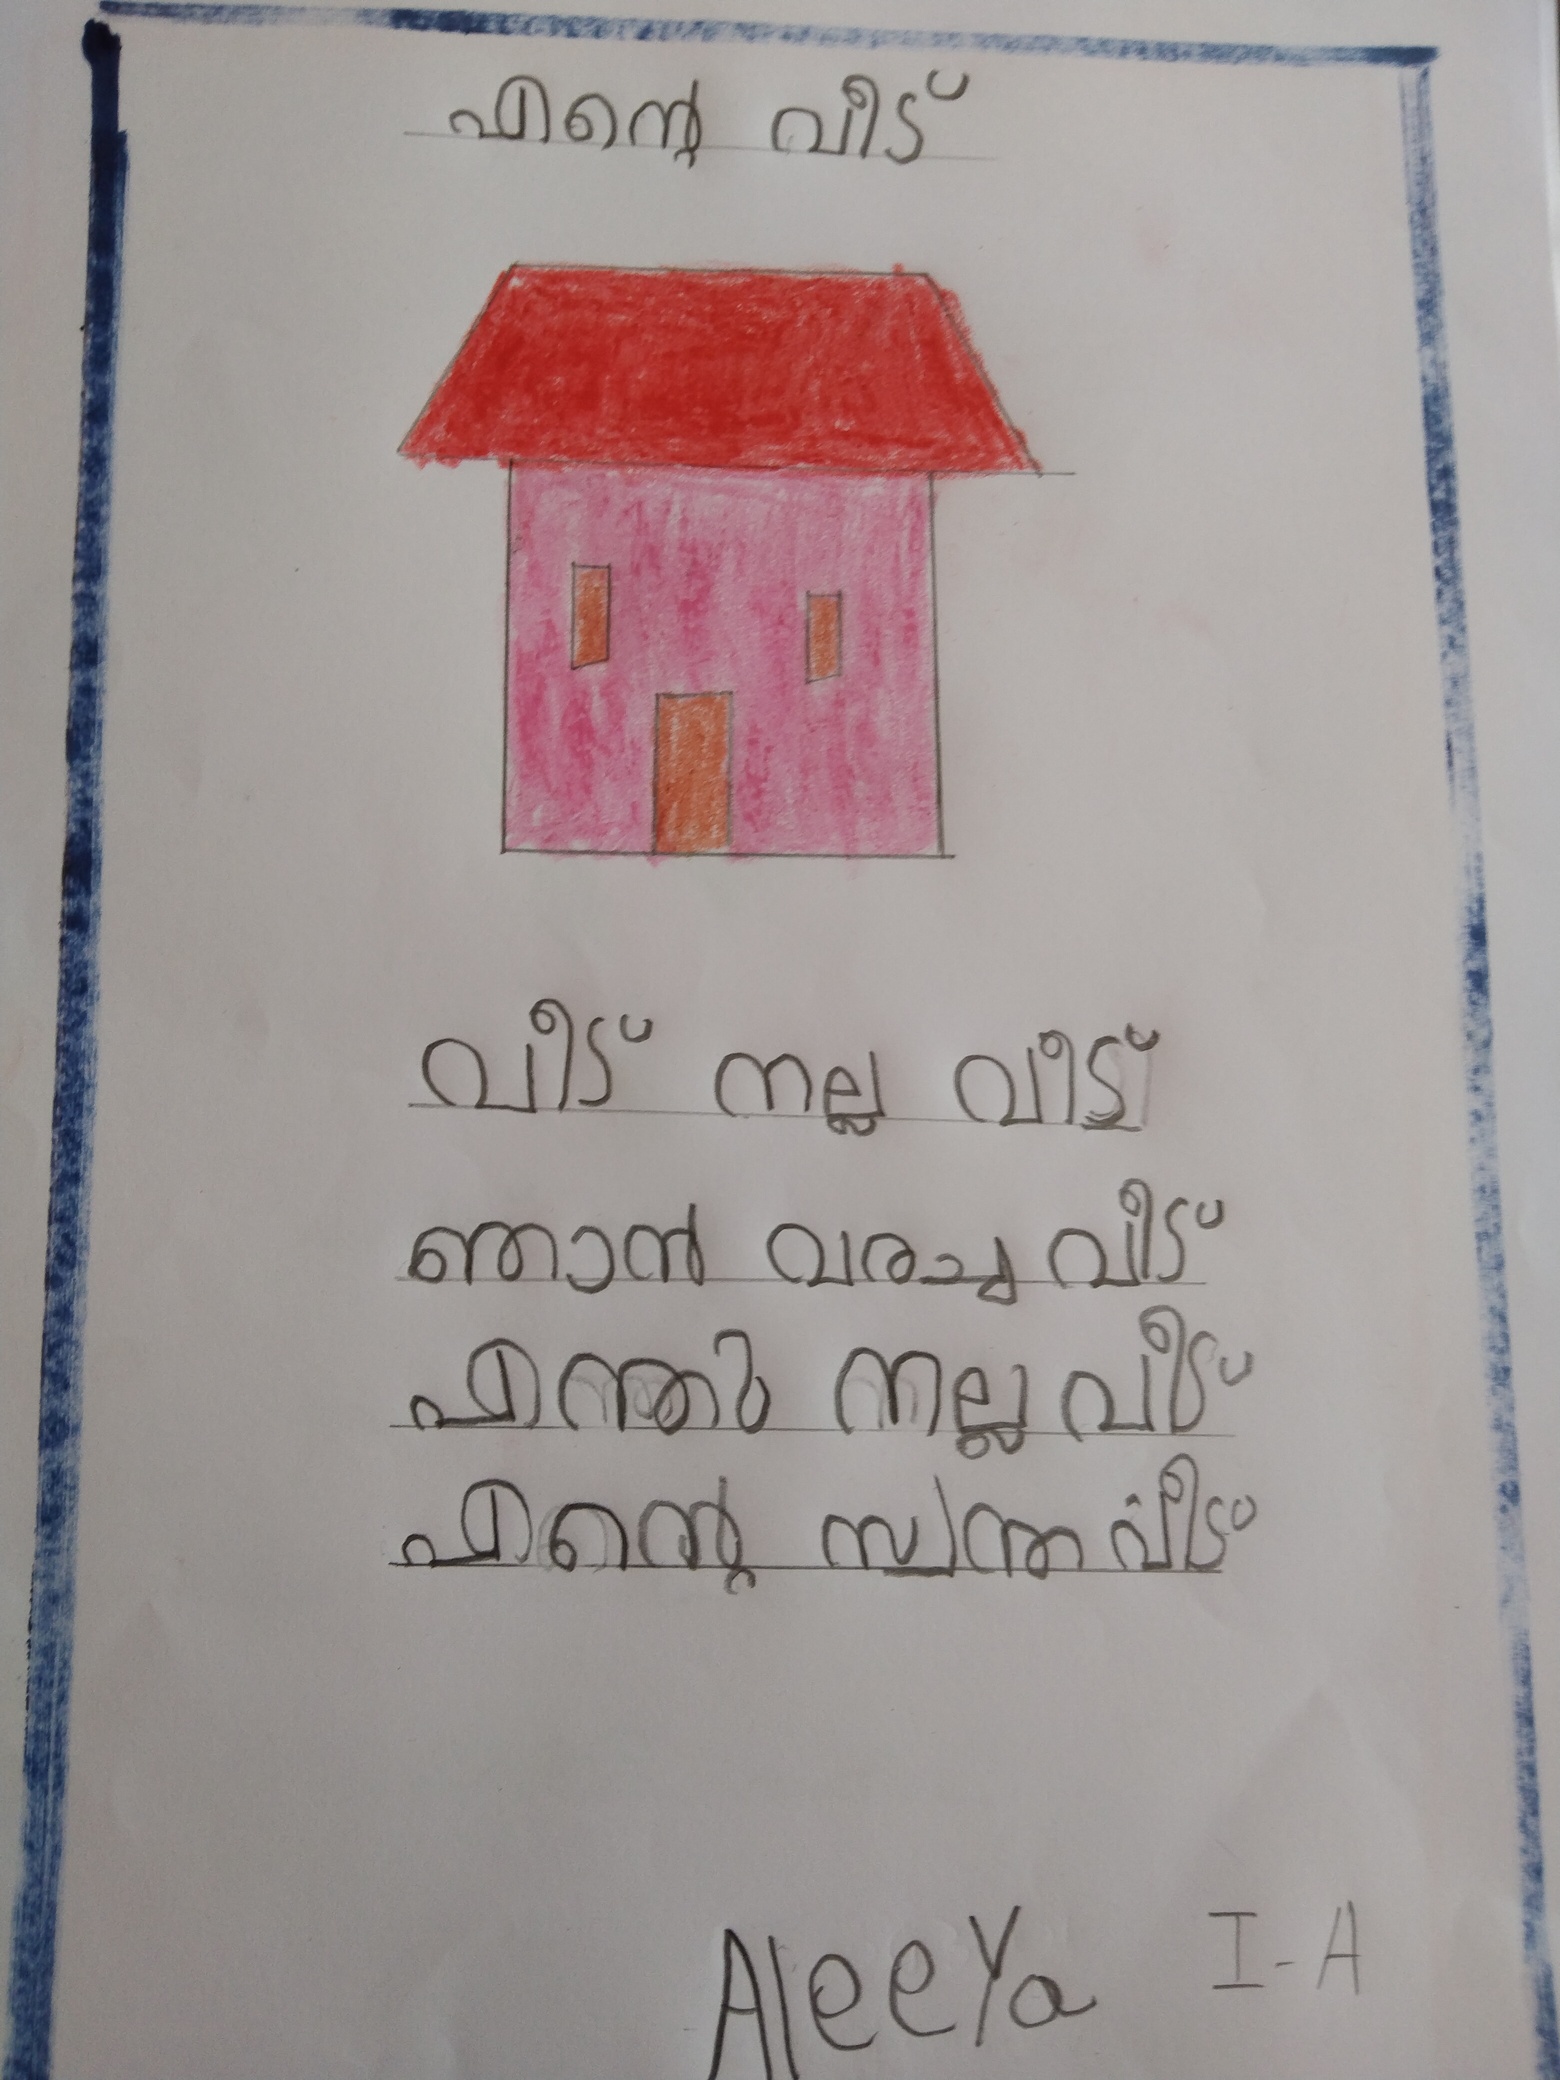 എന്റെ വീട്
വീട് നല്ല വീട്
ഞാൻ വരച്ച വീട്
എന്തൊരു നല്ല വീട്
എന്റെ സ്വന്ത വീട്
Aleeya I-A